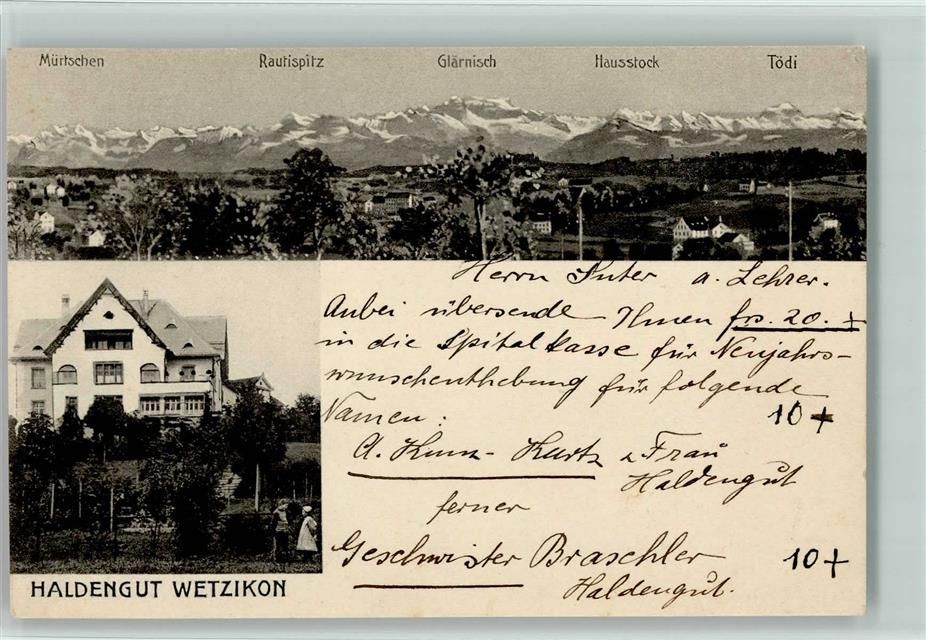 Mürtschen Rautispitz Glärnisch Hausstock Tödi
Herrn Suter a. Lehrer.
Anbei übersende Ihnen frs. 20.+
in die Spitalkasse für Neujahrs-
wunschenthebung für folgende
Namen: 10+
A. Kunz- Kurtz & Frau
Haldengut
ferner
Geschwister Braschler 10+
Haldengut.
HALDENGUT WETZIKON